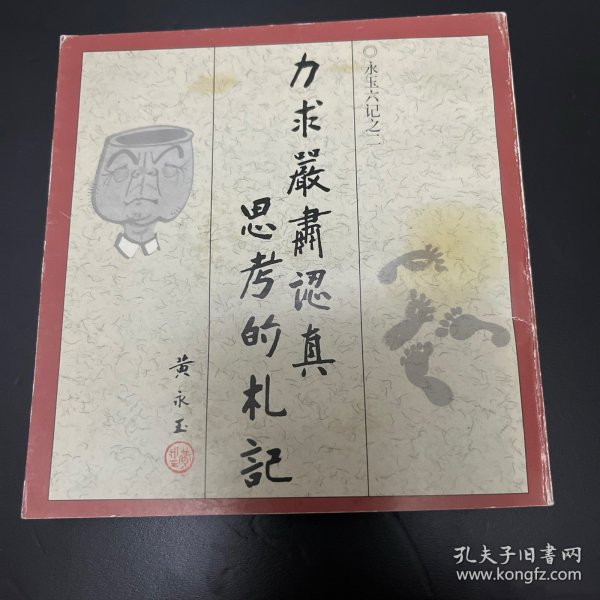 永玉六记之二
力求嚴肅認真
思考的札記
黄永玉
孔夫子旧书网
www.kongfz.com